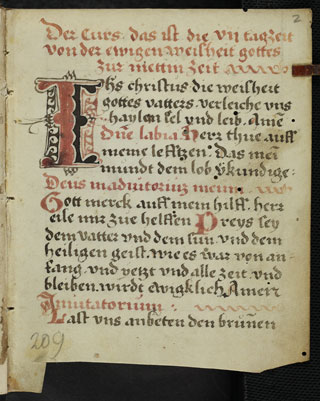 2
Der Curs. das ist die vij tagzeit
von der ewigen weisheit gottes
zur mettin zeit
Ihs christus die weisheit
gottes vatters. verleiche vns
haylen sel vnd leib. Amē
Dn̄e labia. Herr thue auff
meine lefftzen. Das mei
mundt dem lob v̉kundige.
Deus in adiutorium meum.
Gott merck auff mein hilff. herr
eile mir zue helffen Preys sey
dem vatter vnd dem sun. vnd dem
heiligen geist. wie es war von an-
fang. vnd yetzt vnd alle zeit. vnd
bleiben. wirdt ewigklich Amen
Inuitatorium.
Last vns anbeten den brunnen
209